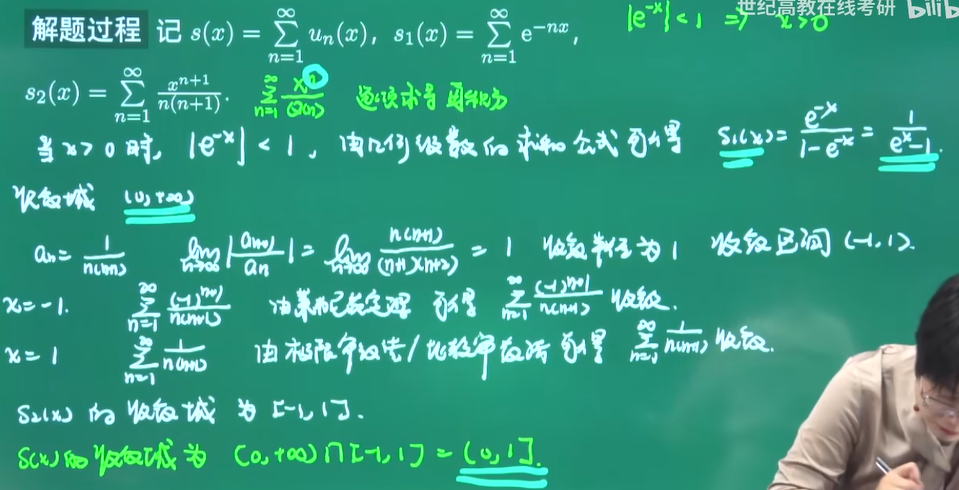 世纪高教在线考研 bilib
|e^{-x}| < 1 ⇒ x>0
解题过程 记 s(x) = \sum_{n=1}^{∞} u_n(x), s_1(x) = \sum_{n=1}^{∞} e^{-nx},
s_2(x) = \sum_{n=1}^{∞} \frac{x^{n+1}}{n(n+1)}. \sum_{n=1}^{∞} \frac{x^n}{Q(n)} 逐项求导 再积分
当 x>0 时, |e^{-x}| < 1, 由几何级数的求和公式可得 S_1(x) = \frac{e^{-x}}{1-e^{-x}} = \frac{1}{e^x-1}.
收敛域 (0,+∞)
a_n = \frac{1}{n(n+1)} \lim_{n→∞} |\frac{a_{n+1}}{a_n}| = \lim_{n→∞} \frac{n(n+1)}{(n+1)(n+2)} = 1 收敛半径为1 收敛区间 (-1,1).
x=-1. \sum_{n=1}^{∞} \frac{(-1)^{n+1}}{n(n+1)} 由莱布尼茨定理 可得 \sum_{n=1}^{∞} \frac{(-1)^{n+1}}{n(n+1)} 收敛.
x=1 \sum_{n=1}^{∞} \frac{1}{n(n+1)} 由极限审敛法/比较审敛法可得 \sum_{n=1}^{∞} \frac{1}{n(n+1)} 收敛.
S_2(x) 的收敛域 为 [-1,1].
S(x)的收敛域为 (0,+∞)∩[-1,1] = (0,1].